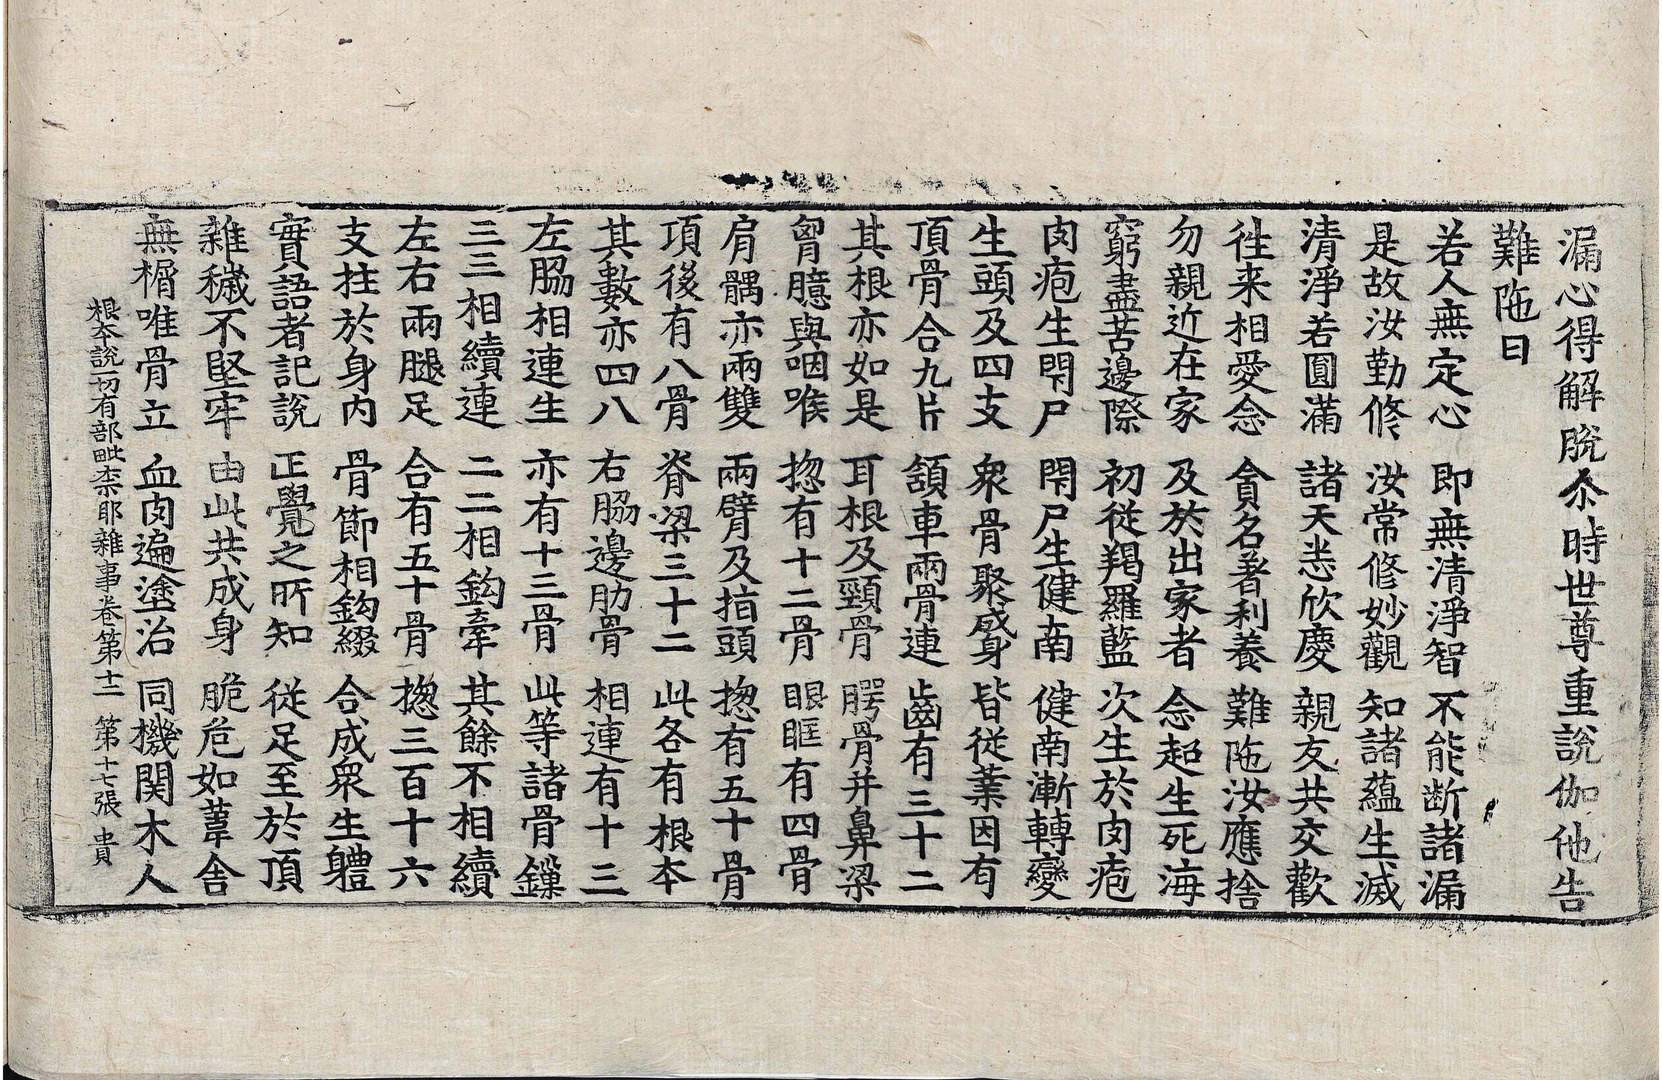 漏心得解脫尒時世尊重說伽他告
難陁曰
若人無定心 即無清淨智 不能断諸漏
是故汝勤修 汝常修妙觀 知諸蘊生滅
清淨若圓滿 諸天悉欣慶 親友共交歡
徃来相愛念 貪名著利養 難陁汝應捨
勿親近在家 及於出家者 念起生死海
窮盡苦邊際 初從羯羅藍 次生於肉疱
肉疱生閇尸 閇尸生健南 健南漸轉變
生頭及四支 衆骨聚成身 皆從業因有
頂骨合九片 頷車兩骨連 齒有三十二
其根亦如是 耳根及頸骨 腭骨并鼻梁
胷臆與咽喉 揔有十二骨 眼眶有四骨
肩髃亦兩雙 兩臂及指頭 揔有五十骨
項後有八骨 脊梁三十二 此各有根本
其數亦四八 右脇邊肋骨 相連有十三
左脇相連生 亦有十三骨 此等諸骨鏁
三三相續連 二二相鈎牽 其餘不相續
左右兩腿足 合有五十骨 揔三百十六
支拄於身內 骨節相鈎綴 合成衆生體
實語者記說 正覺之所知 從足至於頂
雜穢不堅牢 由此共成身 脆危如葦舍
無楣唯骨立 血肉遍塗治 同機関木人
根本說一切有部毗柰耶雜事卷第十二 第十七張 貴